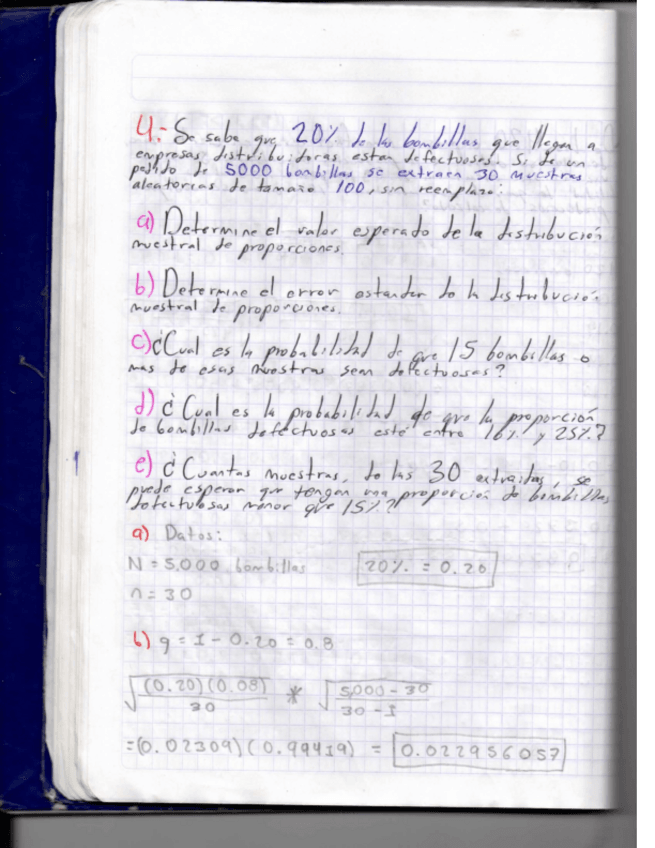 4.- Se sabe que 20% de las bombillas que llegan a
empresas distribuidoras estan defectuosas. Si de un
pedido de 5000 bombillas se extraen 30 muestras
aleatorias de tamaño 100, sin reemplazo:
a) Determine el valor esperado de la distribución
muestral de proporciones.
b) Determine el error estandar de la distribución
muestral de proporciones.
c) ¿Cual es la probabilidad de que 15 bombillas o
mas de esas muestras sean defectuosas?
d) ¿Cual es la probabilidad de que la proporción
de bombillas defectuosas esté entre 16% y 25%?
e) ¿Cuantas muestras, de las 30 extraidas, se
puede esperar que tengan una proporción de bombillas
defectuosas menor que 15%?
a) Datos:
N = 5,000 bombillas 20% = 0.20
n = 30
b) q = 1 - 0.20 = 0.8
√(0.20)(0.08) / 30 * √5,000 - 30 / 30 - 1
= (0.02309)(0.99419) = 0.022956057